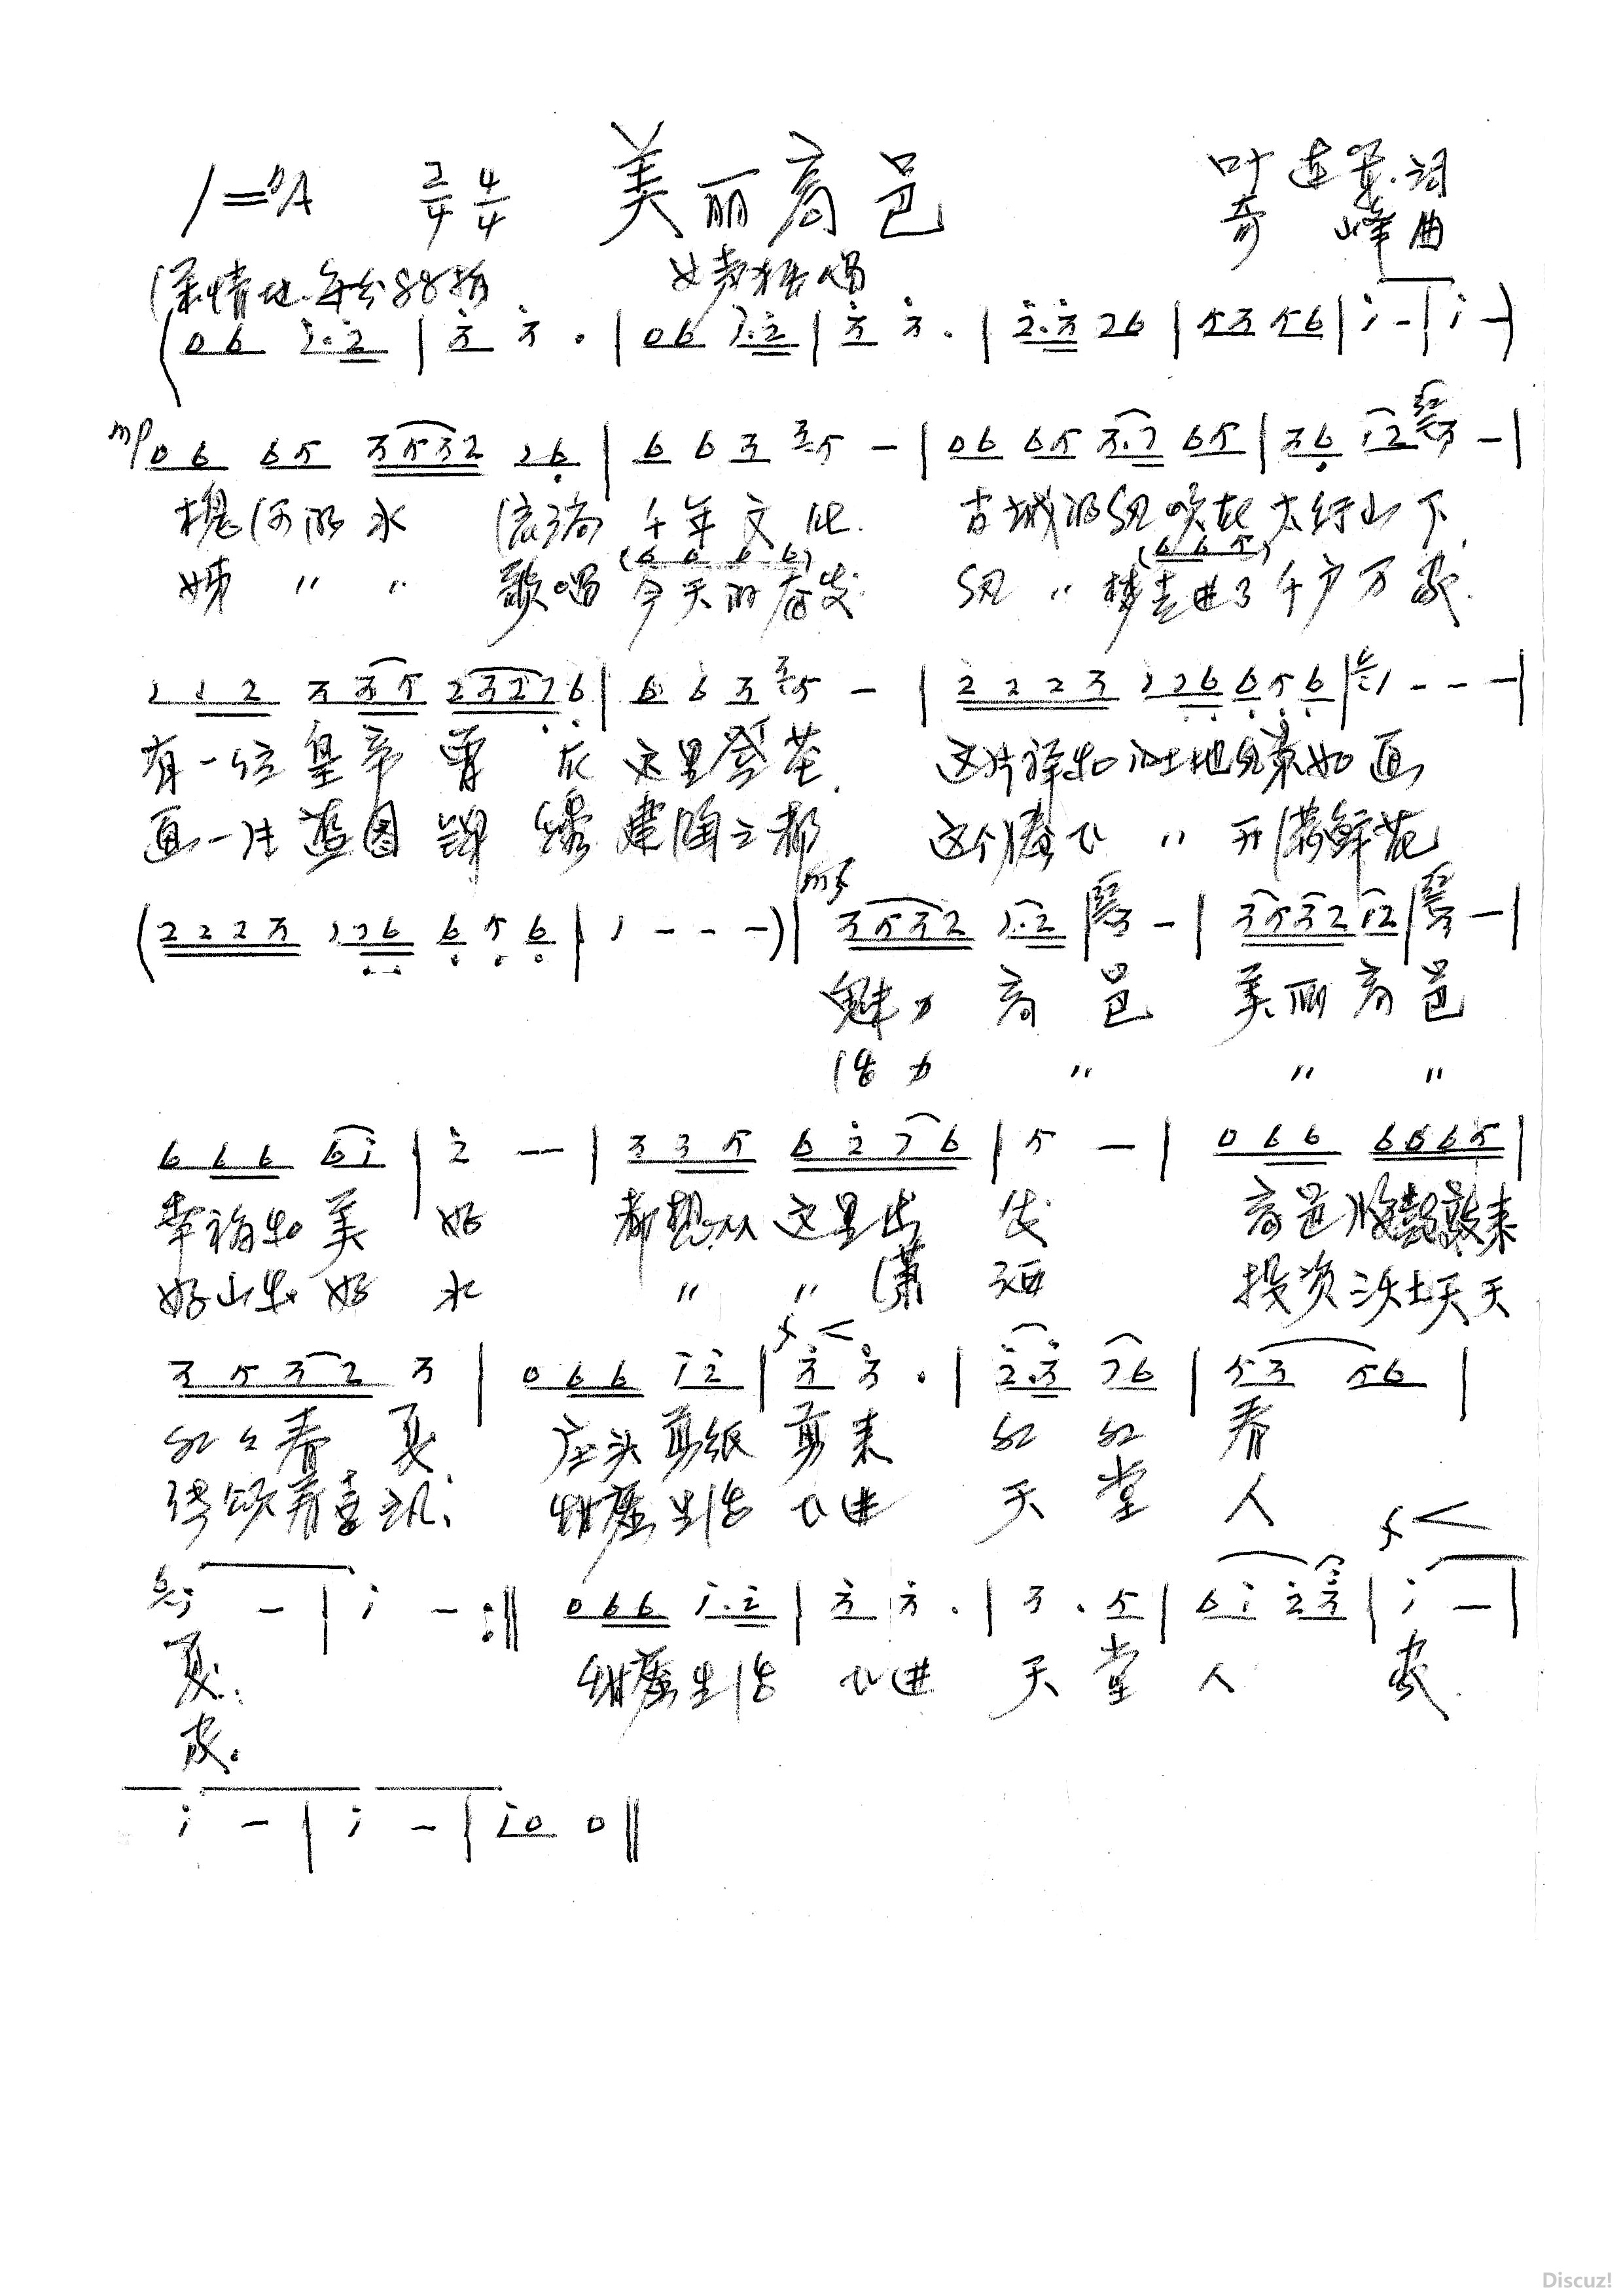 1=♭A 2/4 4/4 美丽高邑 叶连第.词
奇峰曲
(深情地.每分88拍 女声独唱
(06 i.2̇ | 3̇ 3̇ . | 06 i.2̇ | 3̇ 3̇ . | 2̇.3̇ 26 | 53 56 | i - | i -)
mp 06 65 3532 16 | 6 6 3 5 - | 06 65 3.7 65 | 36 12 3 - |
槐河的水 流淌千年文化. 古城的风吹在太行山下,
(6 6 6 6) (6 6 5)
姊 〃 〃 歌唱今天的奋发. 风 〃 梦走进了千户万家.
1 1 2 3 35 23276 | 6 6 3 5 - | 2 2 2 3 1 76 6 5 6 | 1 - - - |
有一位皇帝曾在这里登基. 这片祥和的土地风景如画
画一张蓝图 锦绣建陶之都 这个腾飞 〃 开满鲜花
(2 2 2 3 1 76 6 5 6 | 1 - - -) | mf 3532 1.2 | 3 - | 3532 12 | 3 - |
魅力高邑 美丽高邑
活力 〃 〃 〃
6 6 6 6i | 2̇ -- | 3 3 5 6 2̇ 7 6 | 5 - | 0 6 6 6665 |
幸福和美好 都想从这里出发 高邑腰鼓敲来
好山和好水 〃 〃 潇洒 投资沃土天天
f <
3 5 3 2 3 | 0 6 6 i2̇ | 3̇ 3̇ . | 2̇.3̇ 76 | 53 56 |
红红春夏 庄头剪纸剪来红红春
传颂着喜讯; 甜蜜生活飞进天堂人
f <
i - | i - :‖ 0 6 6 i.2̇ | 3̇ 3̇ . | 3 . 5 | 6i 2̇3̇ | i - |
夏; 甜蜜生活飞进天堂人家.
家.
i - | i - | i0 0 ‖
Discuz!